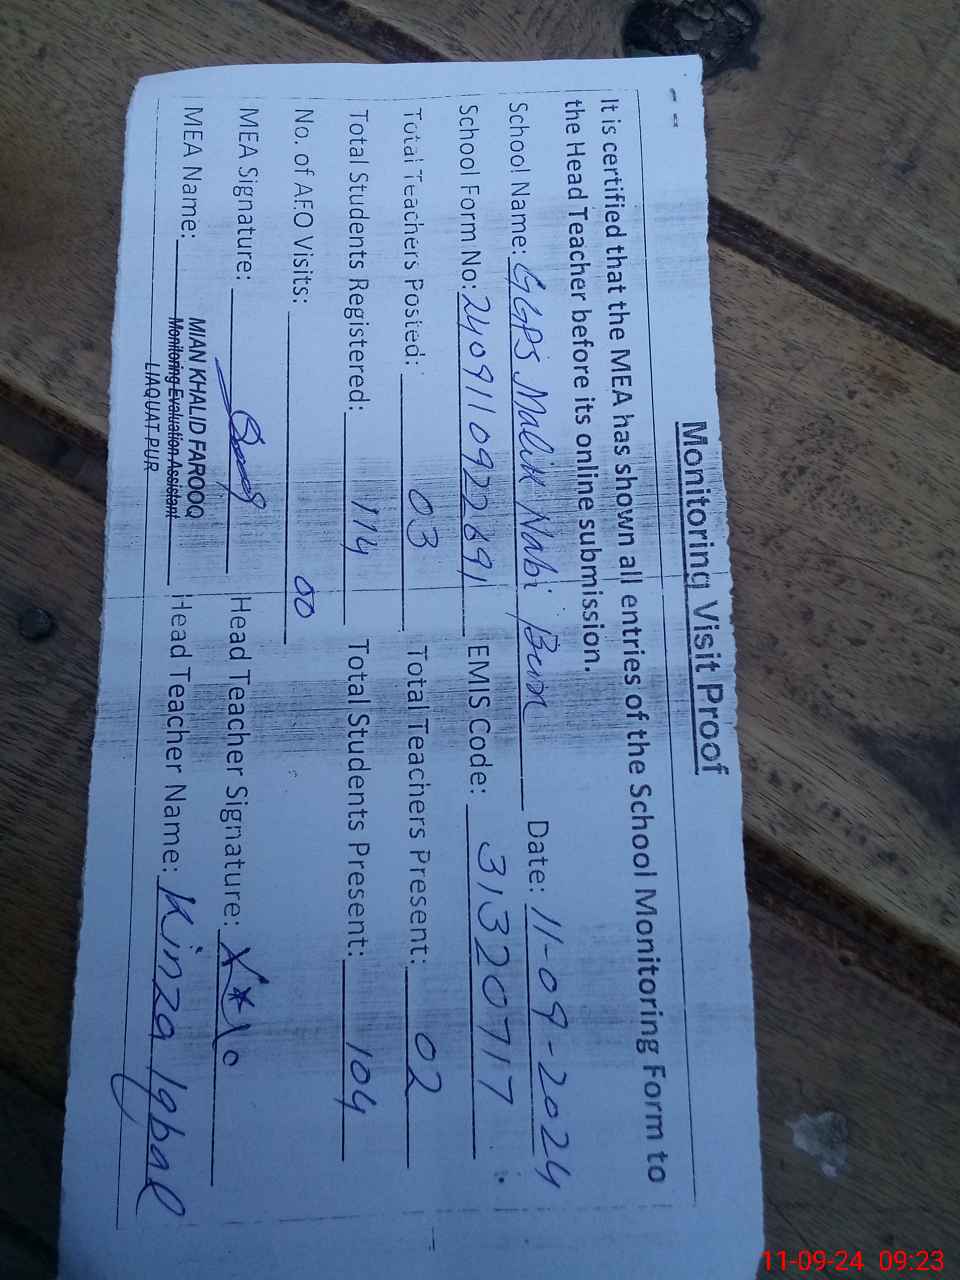 Monitoring Visit Proof
It is certified that the MEA has shown all entries of the School Monitoring Form to
the Head Teacher before its online submission.
School Name: GGPS Malik Nabi Bux Date: 11-09-2024
School Form No: 2409110922691 EMIS Code: 31320717
Total Teachers Posted: 03 Total Teachers Present: 02
Total Students Registered: 114 Total Students Present: 104
No. of AEO Visits: 00
MEA Signature: Head Teacher Signature:
MEA Name: MIAN KHALID FAROOQ Head Teacher Name: Kinza Iqbal
Monitoring Evaluation Assistant
LIAQUAT PUR
11-09-24 09:23